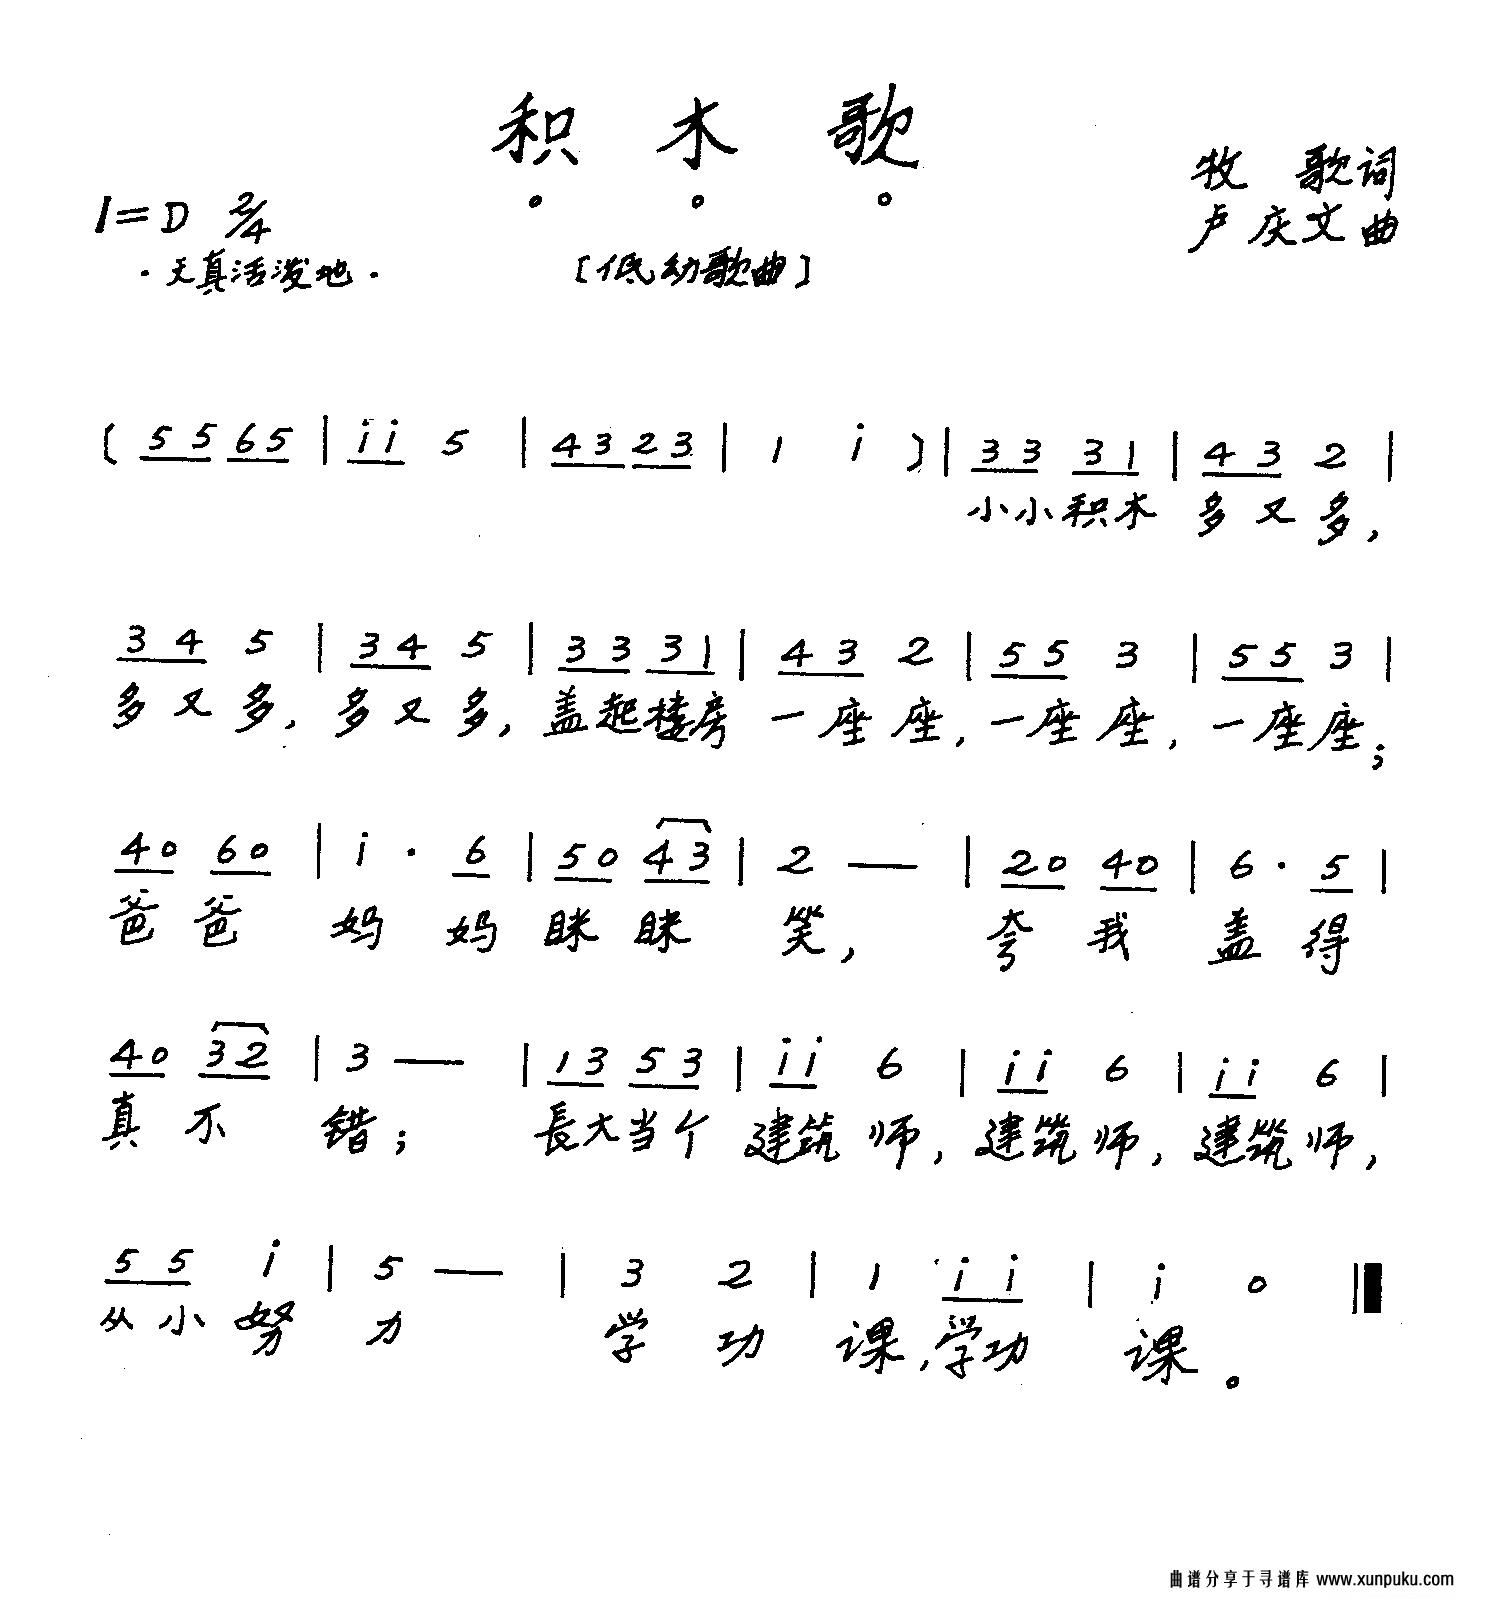 积木歌
牧 歌词
1=D 2/4
卢庆文曲
·天真活泼地·
[低幼歌曲]
( 5 5 6 5 | i i 5 | 4 3 2 3 | 1 i ) | 3 3 3 1 | 4 3 2 |
小小积木 多又多,
3 4 5 | 3 4 5 | 3 3 3 1 | 4 3 2 | 5 5 3 | 5 5 3 |
多又多, 多又多, 盖起楼房 一座座, 一座座, 一座座;
4 0 6 0 | i · 6 | 5 0 4 3 | 2 — | 2 0 4 0 | 6 · 5 |
爸爸 妈妈 眯眯 笑, 夸我 盖得
4 0 3 2 | 3 — | 1 3 5 3 | i i 6 | i i 6 | i i 6 |
真不 错; 長大当个 建筑师, 建筑师, 建筑师,
5 5 i | 5 — | 3 2 | 1 i i | i 0 ‖
从小努 力 学功 课,学功 课。
曲谱分享于寻谱库 www.xunpuku.com